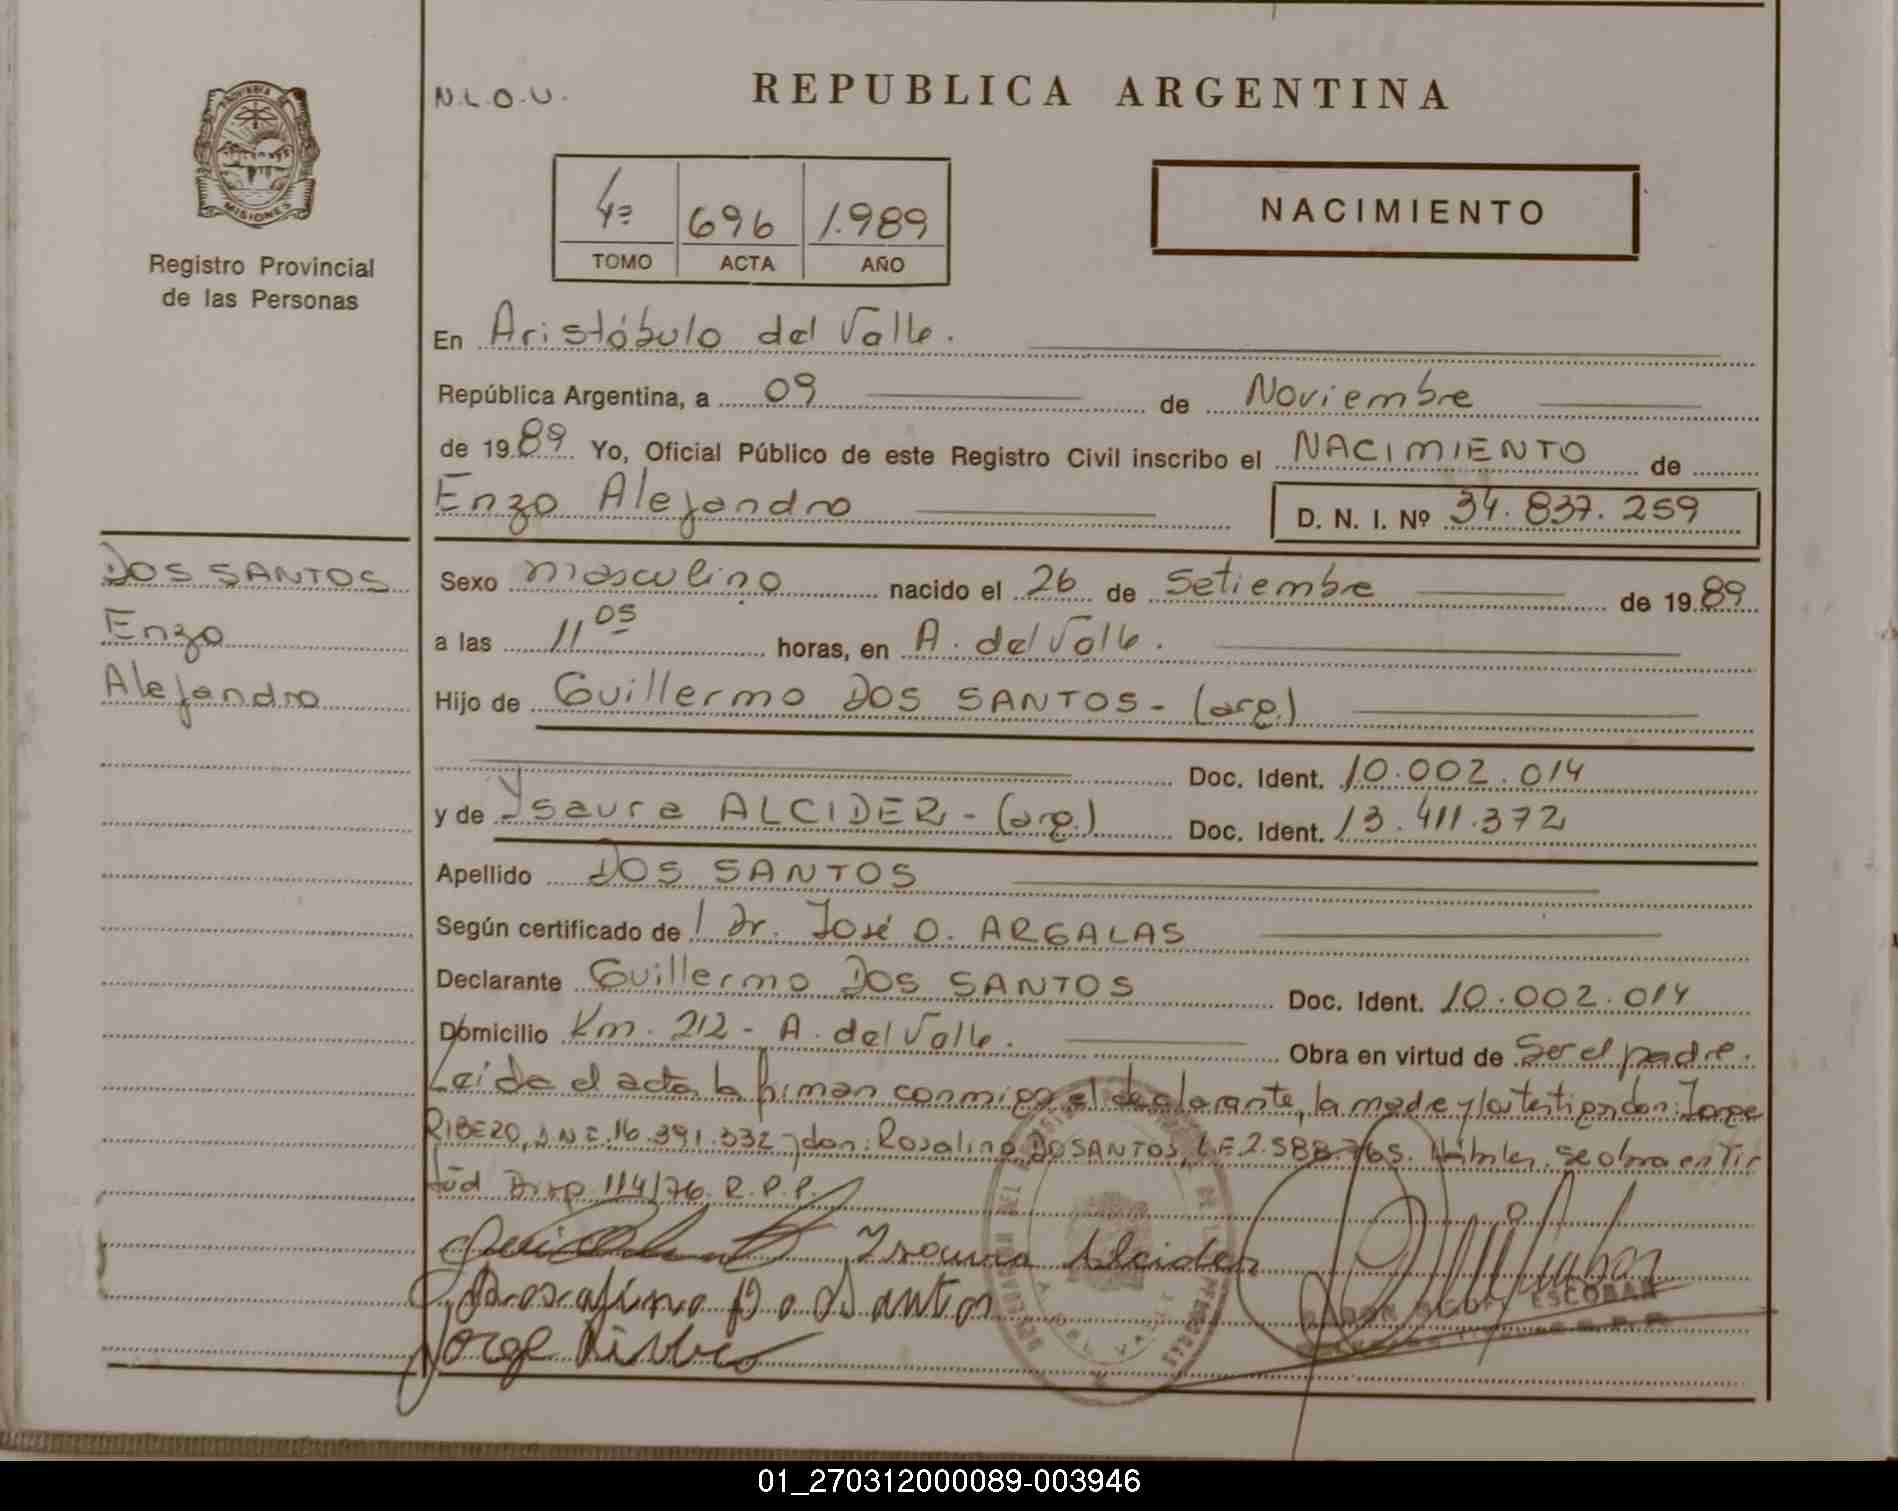 PROVINCIA DE
MISIONES
Registro Provincial
de las Personas
DOS SANTOS
Enzo
Alejandro
N.L.O.U.
REPUBLICA ARGENTINA
4º 696 1.989
TOMO ACTA AÑO
NACIMIENTO
En Aristóbulo del Valle.
República Argentina, a 09 de Noviembre
de 1989 Yo, Oficial Público de este Registro Civil inscribo el NACIMIENTO de
Enzo Alejandro D. N. I. Nº 34.837.259
Sexo masculino nacido el 26 de Setiembre de 1989
a las 11 05 horas, en A. del Valle.
Hijo de Guillermo DOS SANTOS - (arg.)
Doc. Ident. 10.002.014
y de Ysaura ALCIDER - (arg.) Doc. Ident. 13.411.372
Apellido DOS SANTOS
Según certificado de Dr. José O. ARGALAS
Declarante Guillermo DOS SANTOS Doc. Ident. 10.002.014
Domicilio Km. 212 - A. del Valle. Obra en virtud de Ser el padre.
Leida el acta la firman conmigo el declarante, la madre y los testigos don: Jorge
RIBERO, D.N.I. 16.391.332 y don: Rosalino DOSANTOS, L.E. 2.588.765. Hábiles. se obra en vir
túd Disp. 114/76. R.P.P.
Isaura Alcider
Dos Santos
Jorge
ESCOBAR
01_270312000089-003946